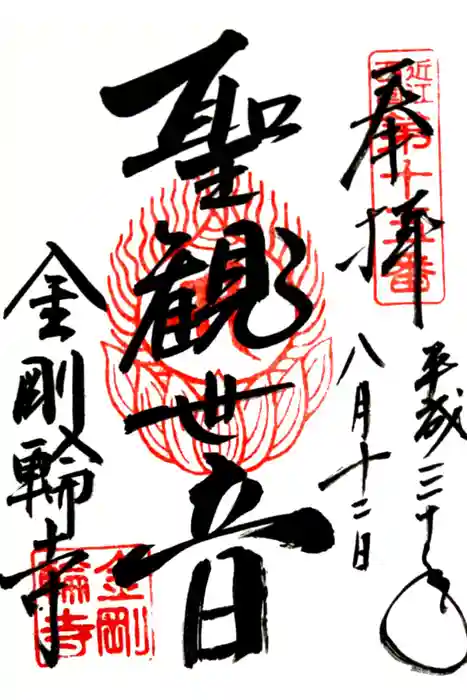 近江
西国
第十五番
奉拝
平成二十
八月十二日
聖観世音
金剛輪寺
金剛
輪寺